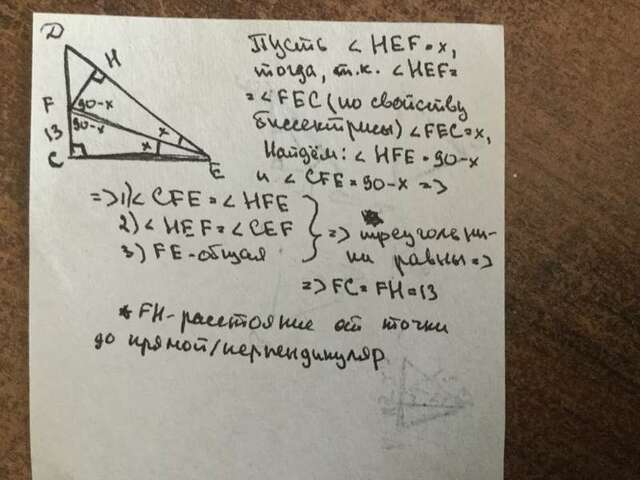 D
H
F
90-x
90-x
13
x
x
C
E
Пусть < HEF = x,
тогда, т.к. < HEF =
= < FEC (по свойству
биссектрисы) < FEC = x,
Найдём: < HFE = 90-x
и < CFE = 90-x =>
=> 1) < CFE = < HFE
2) < HEF = < CEF
3) FE - общая
=> треугольни-
ки равны =>
=> FC = FH = 13
* FH - расстояние от точки
до прямой/перпендикуляр